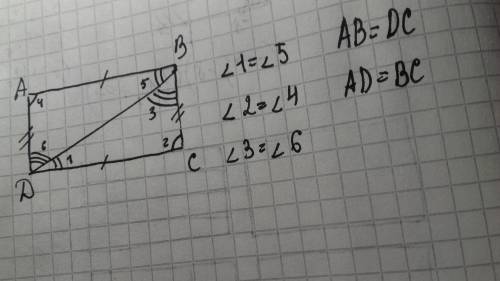 B
A
5
4
3
6
1
2
C
D
∠1=∠5
∠2=∠4
∠3=∠6
AB=DC
AD=BC